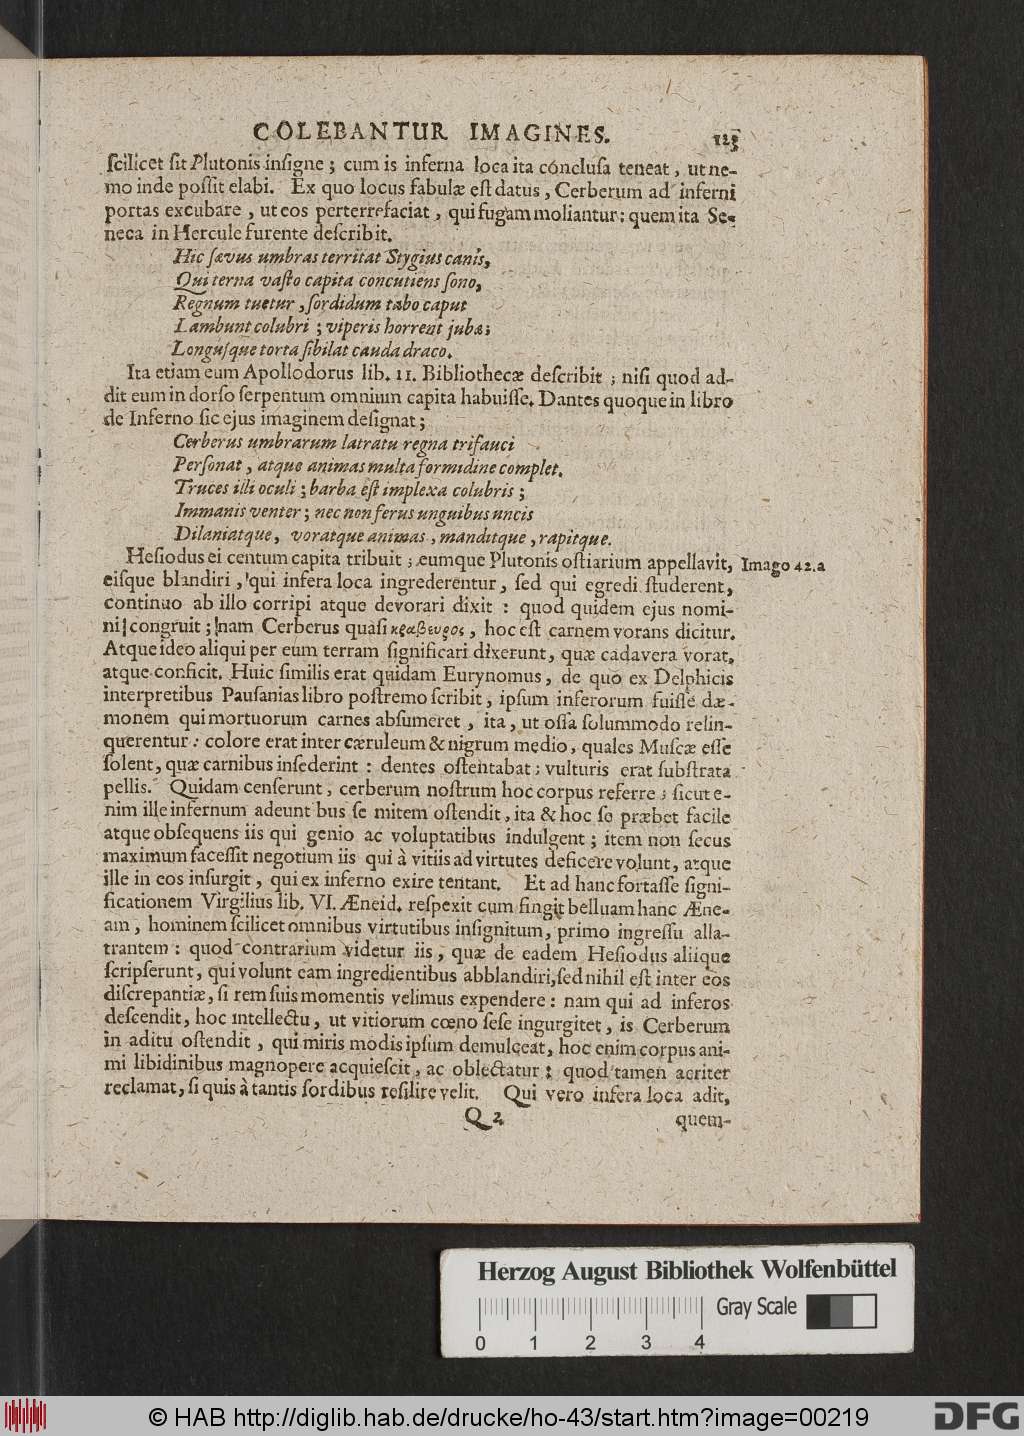 COLEBANTUR IMAGINES. 123
ſcilicet ſit Plutonis inſigne; cum is inferna loca ita cōncluſa teneat, ut ne-
mo inde poſſit elabi. Ex quo locus fabulæ eſt datus, Cerberum ad inferni
portas excubare, ut eos perterrefaciat, qui fugam moliantur: quem ita Se-
neca in Hercule furente deſcribit.
Hic ſævus umbras territat Stygius canis,
Qui terna vaſto capita concutiens ſono,
Regnum tuetur, ſordidum tabo caput
Lambunt colubri; viperis horrent jubæ;
Longuſque torta ſibilat cauda draco.
Ita etiam eum Apollodorus lib. 11. Bibliothecæ deſcribit; niſi quod ad-
dit eum in dorſo ſerpentum omnium capita habuiſſe. Dantes quoque in libro
de Inferno ſic ejus imaginem deſignat;
Cerberus umbrarum latratu regna trifauci
Perſonat, atque animas multa formidine complet.
Truces illi oculi; barba eſt implexa colubris;
Immanis venter; nec non ferus unguibus uncis
Dilaniatque, voratque animas, manditque, rapitque.
Heſiodus ei centum capita tribuit; eumque Plutonis oſtiarium appellavit, Imago 42. a
eiſque blandiri, qui infera loca ingrederentur, ſed qui egredi ſtuderent,
continuo ab illo corripi atque devorari dixit: quod quidem ejus nomi-
ni congruit; nam Cerberus quaſi κρεαβευρος, hoc eſt carnem vorans dicitur.
Atque ideo aliqui per eum terram ſignificari dixerunt, quæ cadavera vorat,
atque conficit. Huic ſimilis erat quidam Eurynomus, de quo ex Delphicis
interpretibus Pauſanias libro poſtremo ſcribit, ipſum inferorum fuiſſe dæ-
monem qui mortuorum carnes abſumeret, ita, ut oſſa ſolummodo relin-
querentur: colore erat inter cæruleum & nigrum medio, quales Muſcæ eſſe
ſolent, quæ carnibus inſederint: dentes oſtentabat; vulturis erat ſubſtrata
pellis. Quidam cenſerunt, cerberum noſtrum hoc corpus referre; ſicut e-
nim ille infernum adeunt bus ſe mitem oſtendit, ita & hoc ſe præbet facile
atque obſequens iis qui genio ac voluptatibus indulgent; item non ſecus
maximum faceſſit negotium iis qui à vitiis ad virtutes deficere volunt, atque
ille in eos inſurgit, qui ex inferno exire tentant. Et ad hanc fortaſſe ſigni-
ficationem Virgilius lib. VI. Æneid. reſpexit cum fingit belluam hanc Æne-
am, hominem ſcilicet omnibus virtutibus inſignitum, primo ingreſſu alla-
trantem: quod contrarium videtur iis, quæ de eadem Heſiodus aliique
ſcripſerunt, qui volunt eam ingredientibus abblandiri, ſed nihil eſt inter eos
diſcrepantiæ, ſi rem ſuis momentis velimus expendere: nam qui ad inferos
deſcendit, hoc intellectu, ut vitiorum cœno ſeſe ingurgitet, is Cerberum
in aditu oſtendit, qui miris modis ipſum demulceat, hoc enim corpus ani-
mi libidinibus magnopere acquieſcit, ac oblectatur: quod tamen acriter
reclamat, ſi quis à tantis ſordibus reſilire velit. Qui vero infera loca adit,
Q 2 quem-
Herzog August Bibliothek Wolfenbüttel
Gray Scale
0 1 2 3 4
© HAB http://diglib.hab.de/drucke/ho-43/start.htm?image=00219
DFG